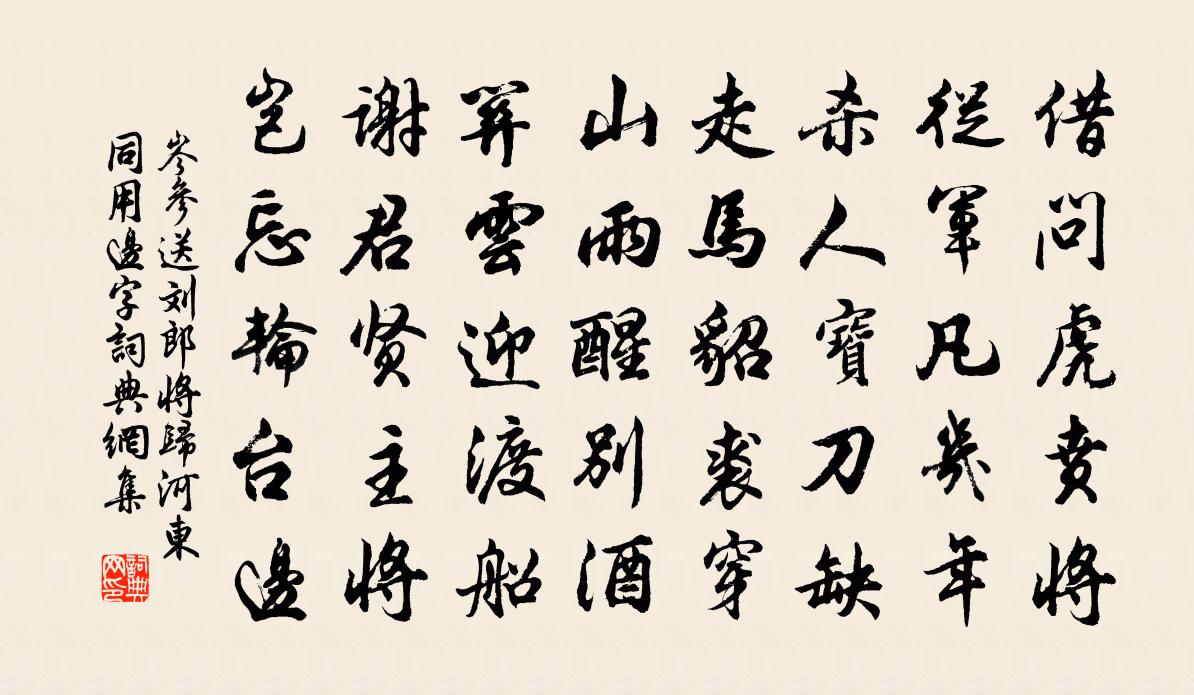 借問虎賁將
從軍凡幾年
杀人寶刀缺
走馬貂裘穿
山雨醒別酒
關雲迎渡船
謝君贤主將
岂忘輪台邊
岑參送刘郎將歸河東
同用邊字詞典網集
詞典网印